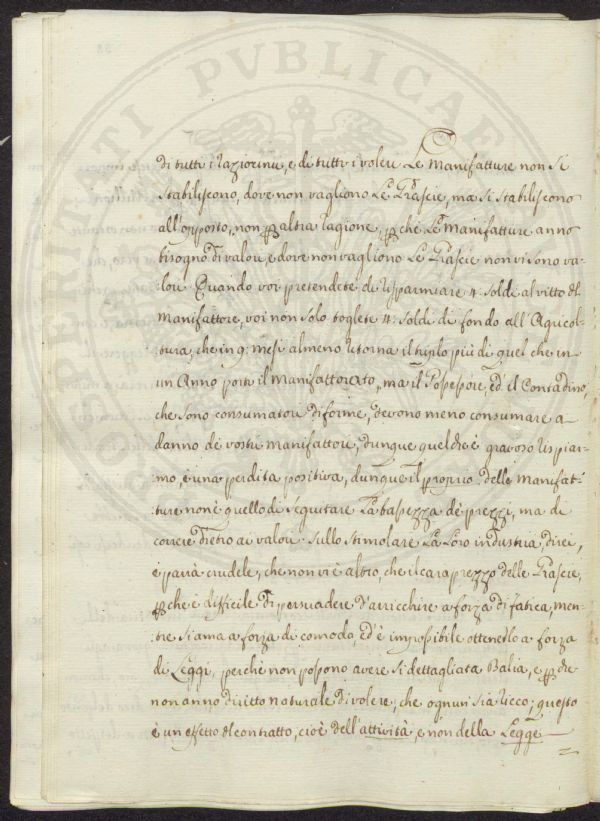 PROSPERITATI PVBLICAE
di tutti i raziocinii, e di tutti i voleri. Le Manifatture non si
stabiliscono, dove non vagliono Le Grascie, ma si stabiliscono
all'opposto, non p altra ragione, pche Le Manifatture anno
bisogno di valori, e dove non vagliono Le Grascie non vi sono va-
lori. Quando voi pretendete di risparmiare 4: soldi al vitto del
Manifattore, voi non solo togliete 4: soldi di fondo all'Agricol-
tura, che in 9: mesi almeno ritorna il triplo più di quel che in
un Anno porta il Manifattorato, ma il Possessore, ed il Contadino,
che sono consumatori diforme, devono meno consumare a
danno de vostri manifattori, dunque quel che è gravoso rispiar-
mo, è una perdita positiva, dunque il proprio delle Manifat-
ture non è quello di seguitare La bassezza de prezzi, ma di
correre dietro a valori. Sullo stimolare La Loro industria, direi,
e parrà crudele, che non vi è altro, che il caro prezzo delle Grascie,
pche è difficile di persuadere d'arricchire a forza di fatica, men-
tre si ama a forza di comodo, ed è impossibile ottenerlo a forza
di Leggi, perchè non possono avere si dettagliata Balia, e pche
non anno diritto naturale di volere, che ognun sia ricco; questo
è un effetto del contratto, cioè dell'attività, e non della Legge